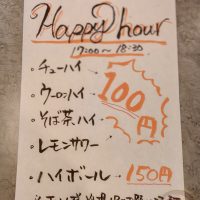 Happy hour
17:00〜18:30
・チューハイ
・ウーロンハイ
・そば茶ハイ
・レモンサワー
100円
・ハイボール 150円